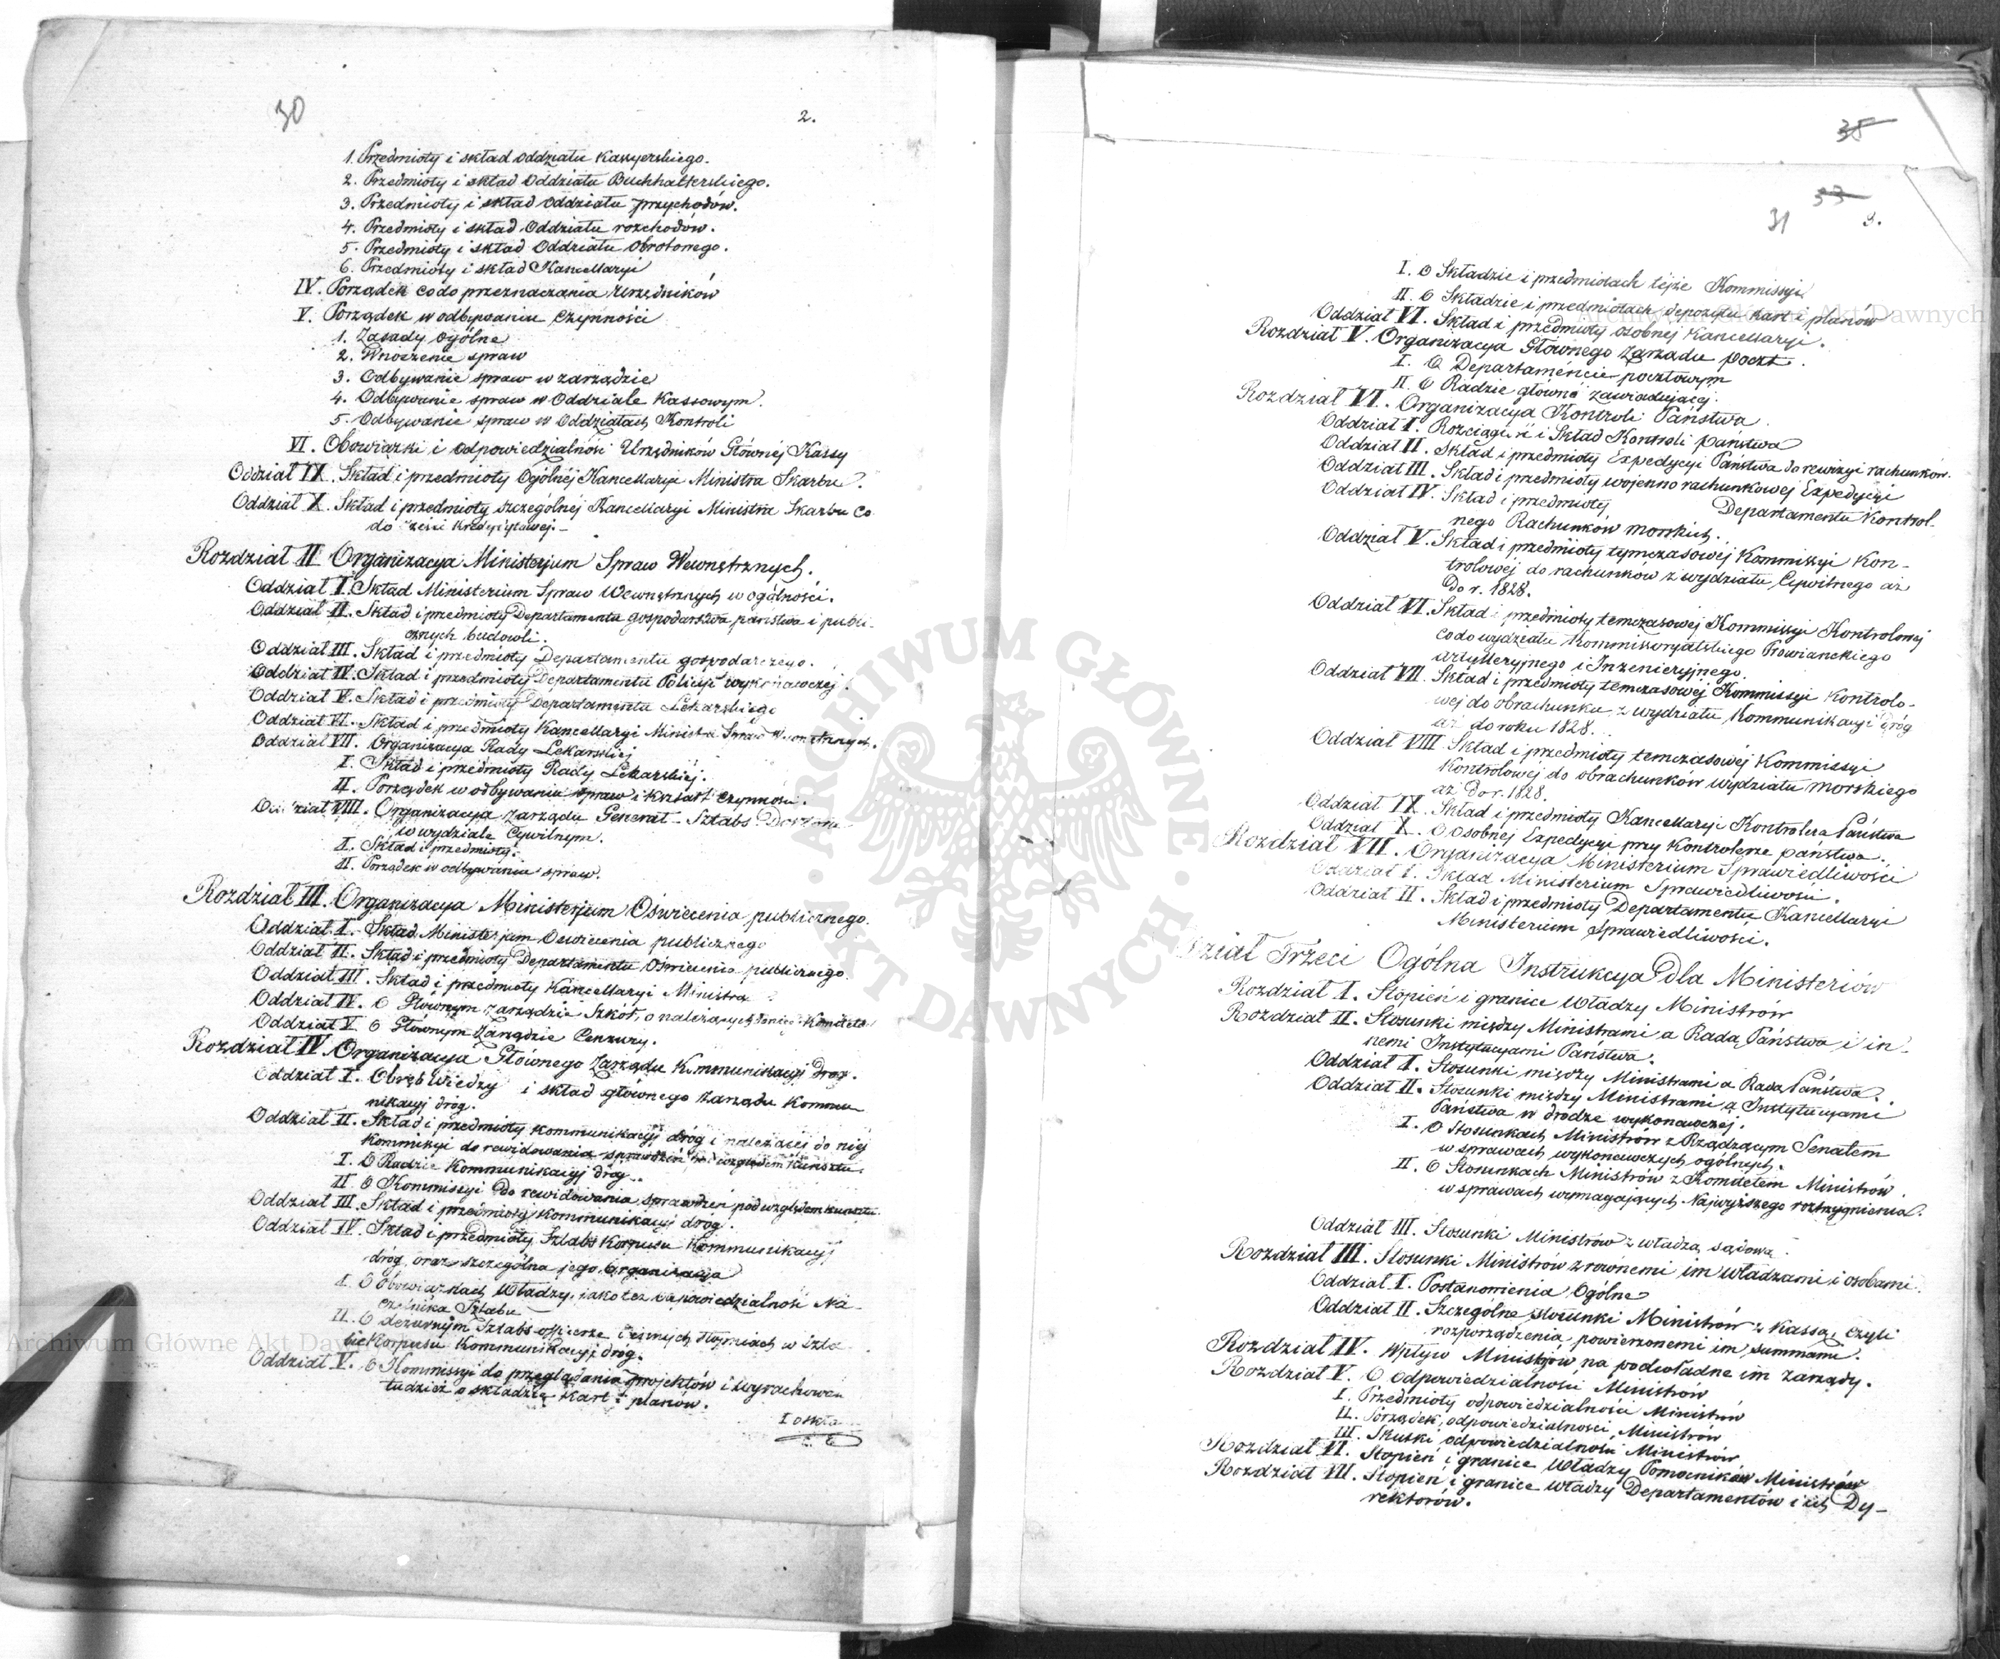 30
2.
1. Przedmioty i skład oddziału Kassyerskiego.
2. Przedmioty i skład Oddziału Buchhalterskiego.
3. Przedmioty i skład oddziału przychodów.
4. Przedmioty i skład Oddziału rozchodów.
5. Przedmioty i skład Oddziału obrotowego.
6. Przedmioty i skład Kancellaryi
IV. Porządek co do przeznaczania Urzędników
V. Porządek w odbywaniu Czynności
1. Zasady ogólne
2. Wnoszenie spraw
3. Odbywanie spraw w zarządzie
4. Odbywanie spraw w Oddziale Kassowym.
5. Odbywanie spraw w Oddziałach Kontroli
VI. Obowiązki i odpowiedzialność Urzędników Głównej Kassy
Oddział IX. Skład i przedmioty Ogólnéj Kancellaryi Ministra Skarbu.
Oddział X. Skład i przedmioty szczególnéj Kancellaryi Ministra Skarbu Co
do części Kredytowej.
Rozdział II Organizacya Ministerjum Spraw Wewnętrznych.
Oddział I. Skład Ministerium Spraw Wewnętrznych w ogólności.
Oddział II. Skład i przedmioty Departamentu gospodarstwa państwa i publi-
cznych budowli.
Oddział III. Skład i przedmioty Departamentu gospodarczego.
Oddział IV. Skład i przedmioty Departamentu Policyi wykonawczej.
Oddział V. Skład i przedmioty Departamentu Lekarskiego
Oddział VI. Skład i przedmioty Kancellaryi Ministra Spraw Wewnętrznych.
Oddział VII. Organizacya Rady Lekarskiej
I. Skład i przedmioty Rady Lekarskiéj.
II. Porządek w odbywaniu spraw i Kształt czynności.
Oddział VIII. Organizacya Zarządu Generał-Sztabs Doktora
w wydziale Cywilnym.
I. Skład i przedmioty.
II. Porządek w odbywaniu spraw.
Rozdział III. Organizacya Ministerjum Oświecenia publicznego.
Oddział I. Skład Ministerjum Oświecenia publicznego
Oddział II. Skład i przedmioty Departamentu Oświecenia publicznego.
Oddział III. Skład i przedmioty Kancellaryi Ministra
Oddział IV. O Głównym zarządzie Szkół, o należących
Oddział V. O Głównym Zarządzie Cenzury.
Rozdział IV. Organizacya Głównego Zarządu Kommunikacyj dróg.
Oddział I. Obręb Wiedzy i skład głównego zarządu Kommu
nikacyj dróg.
Oddział II. Skład i przedmioty kommunikacyj dróg i należącej do niéj
Kommissyi do rewidowania sprawdzeń pod względem kunsztu.
I. O Radzie Kommunikacyj dróg.
II. O Kommissyi Do rewidowania sprawdzeń pod względem kunsztu.
Oddział III. Skład i przedmioty Kommunikacyj dróg.
Oddział IV. Skład i przedmioty Sztabs Korpusu Kommunikacyj
dróg oraz szczególna jego Organizacja
I. O Obowiązkach Władzy, jako też odpowiedzialności Na-
czelnika Sztabu
II. O dezurnym Sztabs officerze i innych Stopniach w Szta
bie Korpusu Kommunikacyj dróg.
Oddział V. O Kommissyi do przeglądania projektów i wyrachowań
tudzież o składzie kart i planów.
I o skła
35
33
31
3.
I. O Składzie i przedmiotach tejże Kommissyi
II. O Składzie i przedmiotach depozytu kart i planów
Oddział VI. Skład i przedmioty osobnej Kancellaryi.
Rozdział V. Organizacya Głównego Zarządu poczt.
I. O Departamencie pocztowym
II. O Radzie główno zawiadującej.
Rozdział VI. Organizacya Kontroli Państwa.
Oddział I. Rozciągłość i Skład Kontroli państwa
Oddział II. Skład i przedmioty Expedycyi Państwa do rewizyi rachunków.
Oddział III. Skład i przedmioty wojenno rachunkowej Expedycyi
Oddział IV. Skład i przedmioty Departamentu Kontrol-
nego Rachunków morskich.
Oddział V. Skład i przedmioty tymczasowéj Kommissyi Kon-
trolowej do rachunków z wydziału Cywilnego aż
Do r. 1828.
Oddział VI. Skład i przedmioty temczasowéj Kommissyi Kontrolowej
co do wydziału Kommissoryatskiego Prowianckiego
artylleryjnego i Inzenieryjnego.
Oddział VII. Skład i przedmioty temczasowéj Kommissyi Kontrolo-
wej do obrachunku z wydziału Kommunikacyi dróg
aż do roku 1828.
Oddział VIII Skład i przedmioty temczasowéj Kommissyi
Kontrolowej do obrachunków wydziału morskiego
aż do r. 1828.
Oddział IX. Skład i przedmioty Kancellaryi Kontrolera Państwa
Oddział X. O osobnej Expedycyi przy Kontrolerze państwa.
Rozdział VII. Organizacya Ministerium Sprawiedliwości
Oddział I. Skład Ministerium Sprawiedliwości.
Oddział II. Skład i przedmioty Departamentu Kancellaryi
Ministerium Sprawiedliwości.
Dział Trzeci Ogólna Instrukcya dla Ministeriów
Rozdział I. Stopień i granice Władzy Ministrów
Rozdział II. Stosunki między Ministrami a Radą Państwa i in-
nemi Instytucyami Państwa.
Oddział I. Stosunki między Ministrami a Radą Państwa.
Oddział II. Stosunki między Ministrami a Instytucyami
Państwa w drodze wykonawczej.
I. O Stosunkach Ministrów z Rządzącym Senatem
w sprawach wykonawczych ogólnych.
II. O Stosunkach Ministrów z Komitetem Ministrów
w sprawach wymagających Najwyższego roztrzygnienia.
Oddział III. Stosunki Ministrów z władzą sądową.
Rozdział III. Stosunki Ministrów z rownemi im władzami i osobami.
Oddział I. Postanowienia Ogólne
Oddział II. Szczególne stosunki Ministrów z Kassą, czyli
rozporządzenia powierzonemi im summami.
Rozdział IV. Wpływ Ministrjów na podwładne im Zarządy.
Rozdział V. O odpowiedzialności Ministrów
I. Przedmioty odpowiedzialności Ministrów
II. Porządek odpowiedzialności Ministrów
III. Skutki odpowiedzialności Ministrów
Rozdział VI. Stopień i granice Władzy Pomocników Ministrów
Rozdział VII. Stopień i granice władzy Departamentów i ich Dy-
rektorów.
Archiwum Główne Akt Dawnych
Archiwum Główne Akt Dawnych
ARCHIWUM GŁÓWNE
AKT DAWNYCH